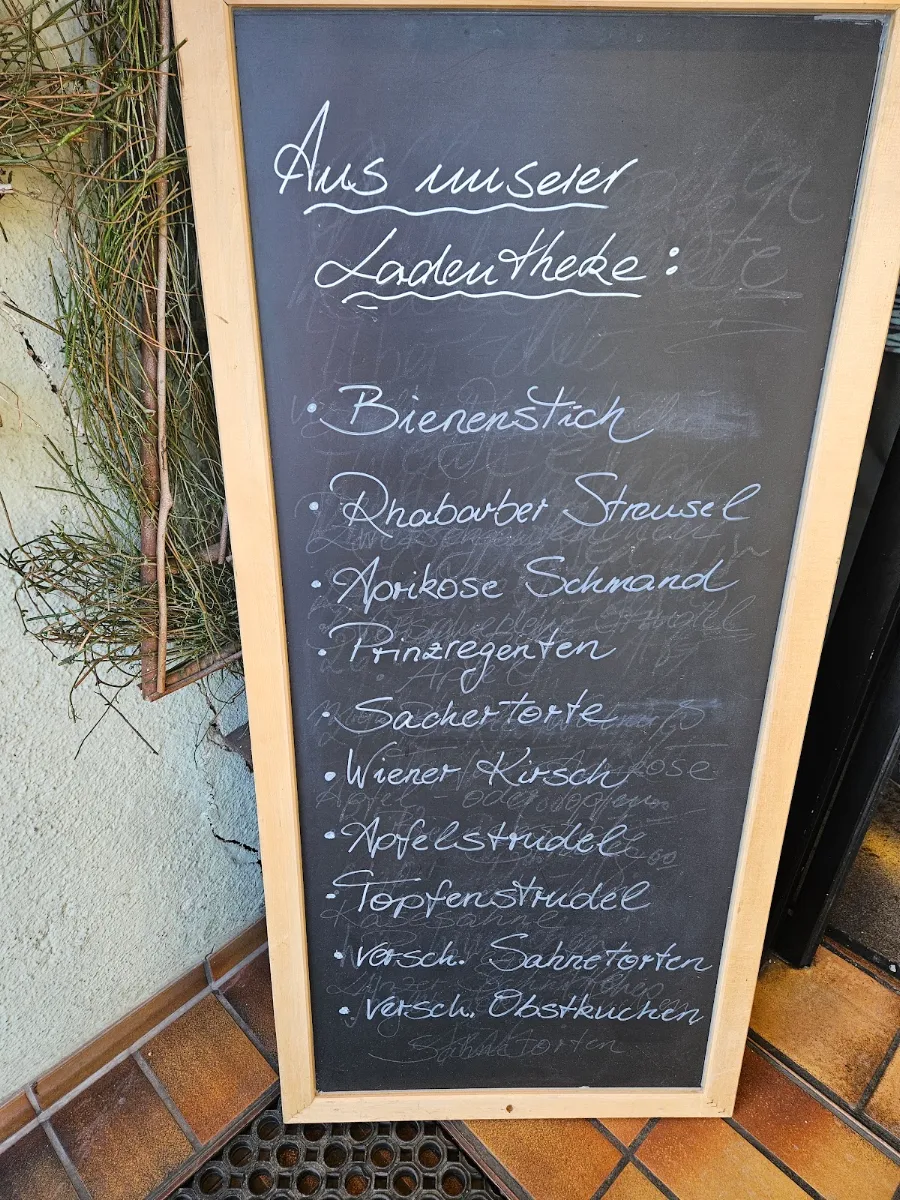 Aus unserer
Ladentheke:
• Bienenstich
• Rhabarber Streusel
• Aprikose Schmand
• Prinzregenten
• Sachertorte
• Wiener Kirsch
• Apfelstrudel
• Topfenstrudel
• versch. Sahnetorten
• versch. Obstkuchen